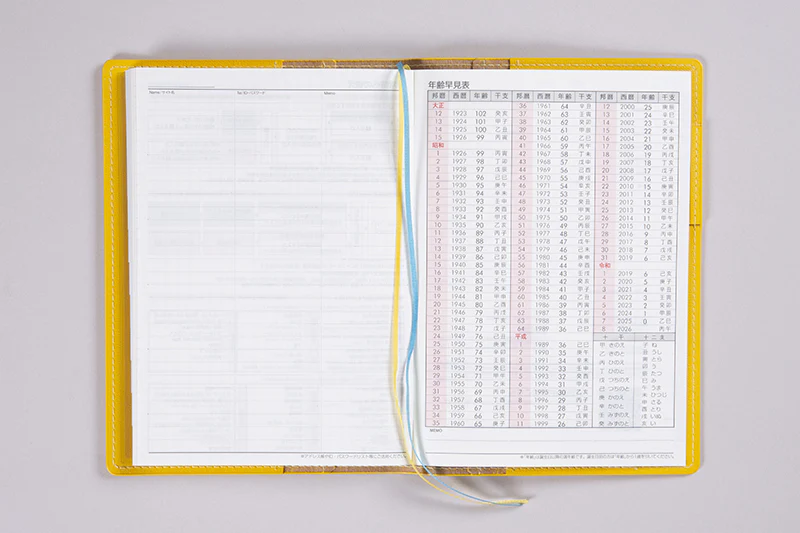 Memo
年齢早見表
邦暦 西暦 年齢 干支
大正
12 1923 102 癸亥
13 1924 101 甲子
14 1925 100 乙丑
15 1926 99 丙寅
昭和
1 1926 99 丙寅
2 1927 98 丁卯
3 1928 97 戊辰
4 1929 96 己巳
5 1930 95 庚午
6 1931 94 辛未
7 1932 93 壬申
8 1933 92 癸酉
9 1934 91 甲戌
10 1935 90 乙亥
11 1936 89 丙子
12 1937 88 丁丑
13 1938 87 戊寅
14 1939 86 己卯
15 1940 85 庚辰
16 1941 84 辛巳
17 1942 83 壬午
18 1943 82 癸未
19 1944 81 甲申
20 1945 80 乙酉
21 1946 79 丙戌
22 1947 78 丁亥
23 1948 77 戊子
24 1949 76 己丑
25 1950 75 庚寅
26 1951 74 辛卯
27 1952 73 壬辰
28 1953 72 癸巳
29 1954 71 甲午
30 1955 70 乙未
31 1956 69 丙申
32 1957 68 丁酉
33 1958 67 戊戌
34 1959 66 己亥
35 1960 65 庚子
邦暦 西暦 年齢 干支
36 1961 64 辛丑
37 1962 63 壬寅
38 1963 62 癸卯
39 1964 61 甲辰
40 1965 60 乙巳
41 1966 59 丙午
42 1967 58 丁未
43 1968 57 戊申
44 1969 56 己酉
45 1970 55 庚戌
46 1971 54 辛亥
47 1972 53 壬子
48 1973 52 癸丑
49 1974 51 甲寅
50 1975 50 乙卯
51 1976 49 丙辰
52 1977 48 丁巳
53 1978 47 戊午
54 1979 46 己未
55 1980 45 庚申
56 1981 44 辛酉
57 1982 43 壬戌
58 1983 42 癸亥
59 1984 41 甲子
60 1985 40 乙丑
61 1986 39 丙寅
62 1987 38 丁卯
63 1988 37 戊辰
64 1989 36 己巳
平成
1 1989 36 己巳
2 1990 35 庚午
3 1991 34 辛未
4 1992 33 壬申
5 1993 32 癸酉
6 1994 31 甲戌
7 1995 30 乙亥
8 1996 29 丙子
9 1997 28 丁丑
10 1998 27 戊寅
11 1999 26 己卯
邦暦 西暦 年齢 干支
12 2000 25 庚辰
13 2001 24 辛巳
14 2002 23 壬午
15 2003 22 癸未
16 2004 21 甲申
17 2005 20 乙酉
18 2006 19 丙戌
19 2007 18 丁亥
20 2008 17 戊子
21 2009 16 己丑
22 2010 15 庚寅
23 2011 14 辛卯
24 2012 13 壬辰
25 2013 12 癸巳
26 2014 11 甲午
27 2015 10 乙未
28 2016 9 丙申
29 2017 8 丁酉
30 2018 7 戊戌
31 2019 6 己亥
令和
1 2019 6 己亥
2 2020 5 庚子
3 2021 4 辛丑
4 2022 3 壬寅
5 2023 2 癸卯
6 2024 1 甲辰
7 2025 0 乙巳
8 2026 丙午
十干 十二支
甲 きのえ
乙 きのと
丙 ひのえ
丁 ひのと
戊 つちのえ
己 つちのと
庚 かのえ
辛 かのと
壬 みずのえ
癸 みずのと
子 ね
丑 うし
寅 とら
卯 う
辰 たつ
巳 み
午 うま
未 ひつじ
申 さる
酉 とり
戌 いぬ
亥 い
MEMO